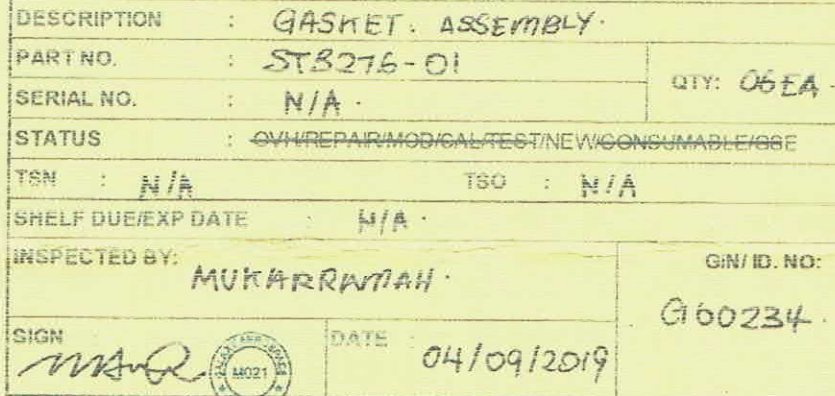 DESCRIPTION : GASKET. ASSEMBLY.
PART NO. : ST3276-01
QTY: 06 EA.
SERIAL NO. : N/A.
STATUS : OVH/REPAIR/MOD/CAL/TEST/NEW/CONSUMABLE/GSE
TSN : N/A TSO : N/A
SHELF DUE/EXP DATE : N/A.
INSPECTED BY:
GIN/ID. NO:
G00234.
SIGN
M021
DATE : 04/09/2019